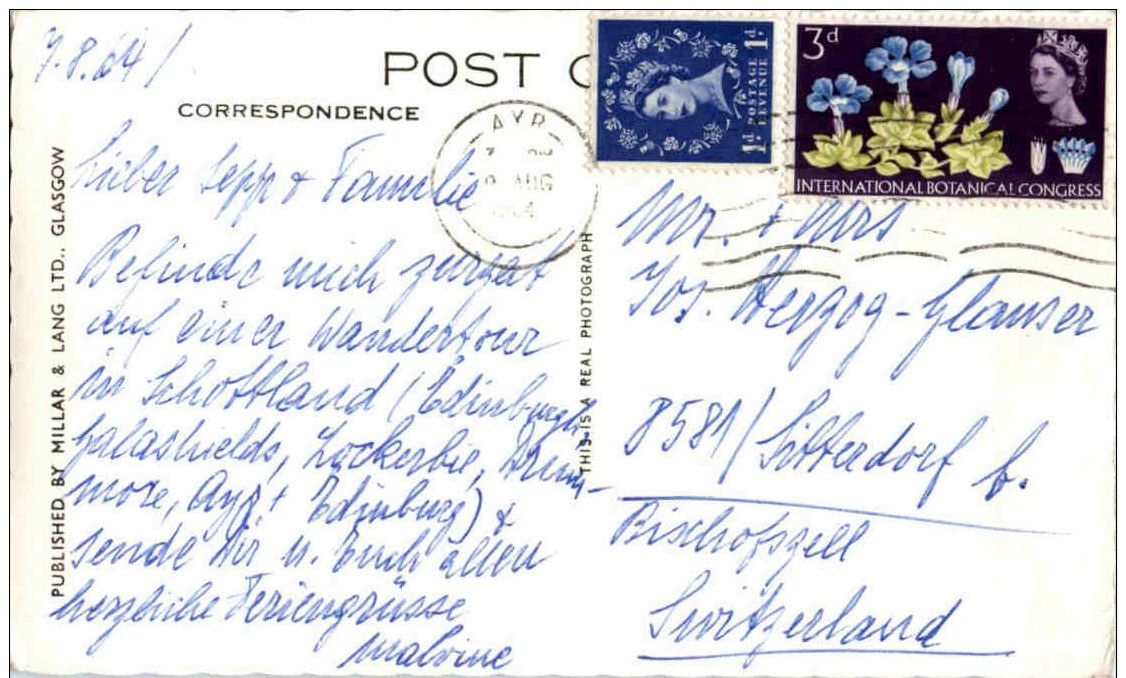 7.8.64/
POST C
CORRESPONDENCE
Lieber Sepp + Familie
Befinde mich zurzeit
auf einer Wandertour
in Schottland (Edinburgh,
Galashields, Lockerbie, Drum-
more, Ayr + Edinburg) +
sende Dir u. Euch allen
herzliche Feriengrüsse
Malvine
PUBLISHED BY MILLAR & LANG LTD., GLASGOW
THIS IS A REAL PHOTOGRAPH
AYR
AUG
1964
1d POSTAGE REVENUE 1d
3d
INTERNATIONAL BOTANICAL CONGRESS
Mr. + Mrs.
Jos. Herzog-Glauser
8581/Sitterdorf b.
Bischofszell
Switzerland